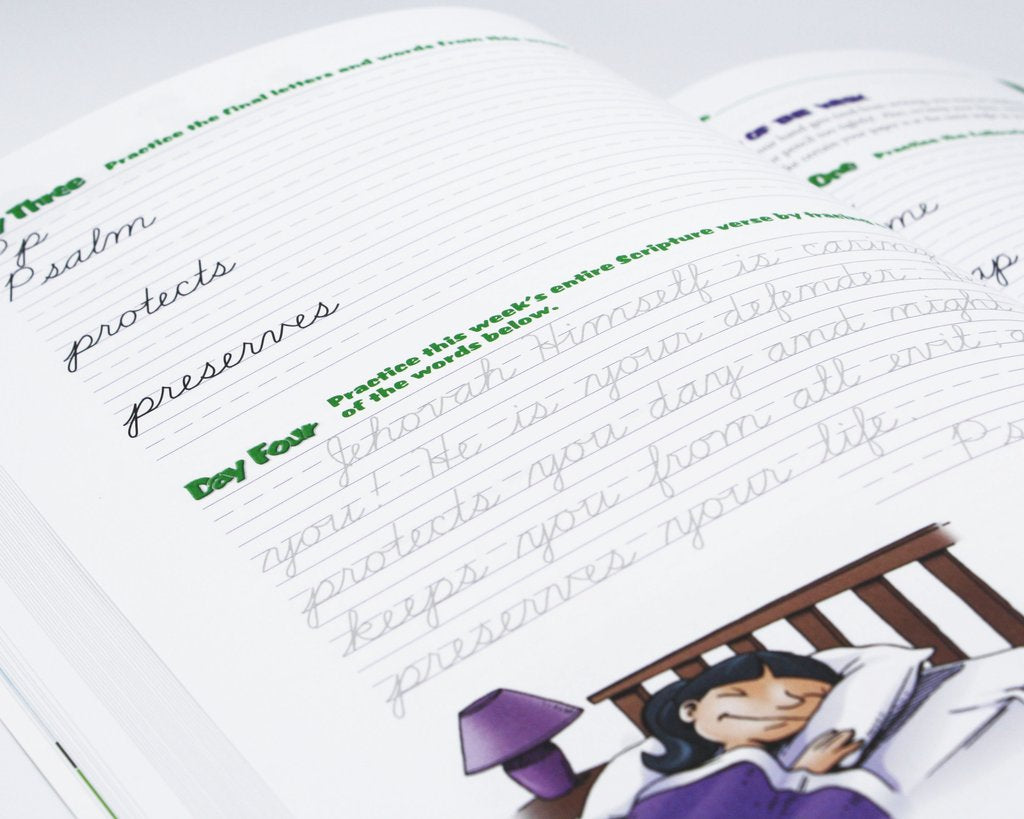 Practice the final letters and words from this
Three
P p
Psalm
protects
preserves
Day Four
Practice this week's entire Scripture verse by tracing
of the words below.
Jehovah Himself is caring
you! He is your defender.
protects you day and night
keeps you from all evil,
preserves your life. Ps
OF THE WEEK
One
Practice the
me
up